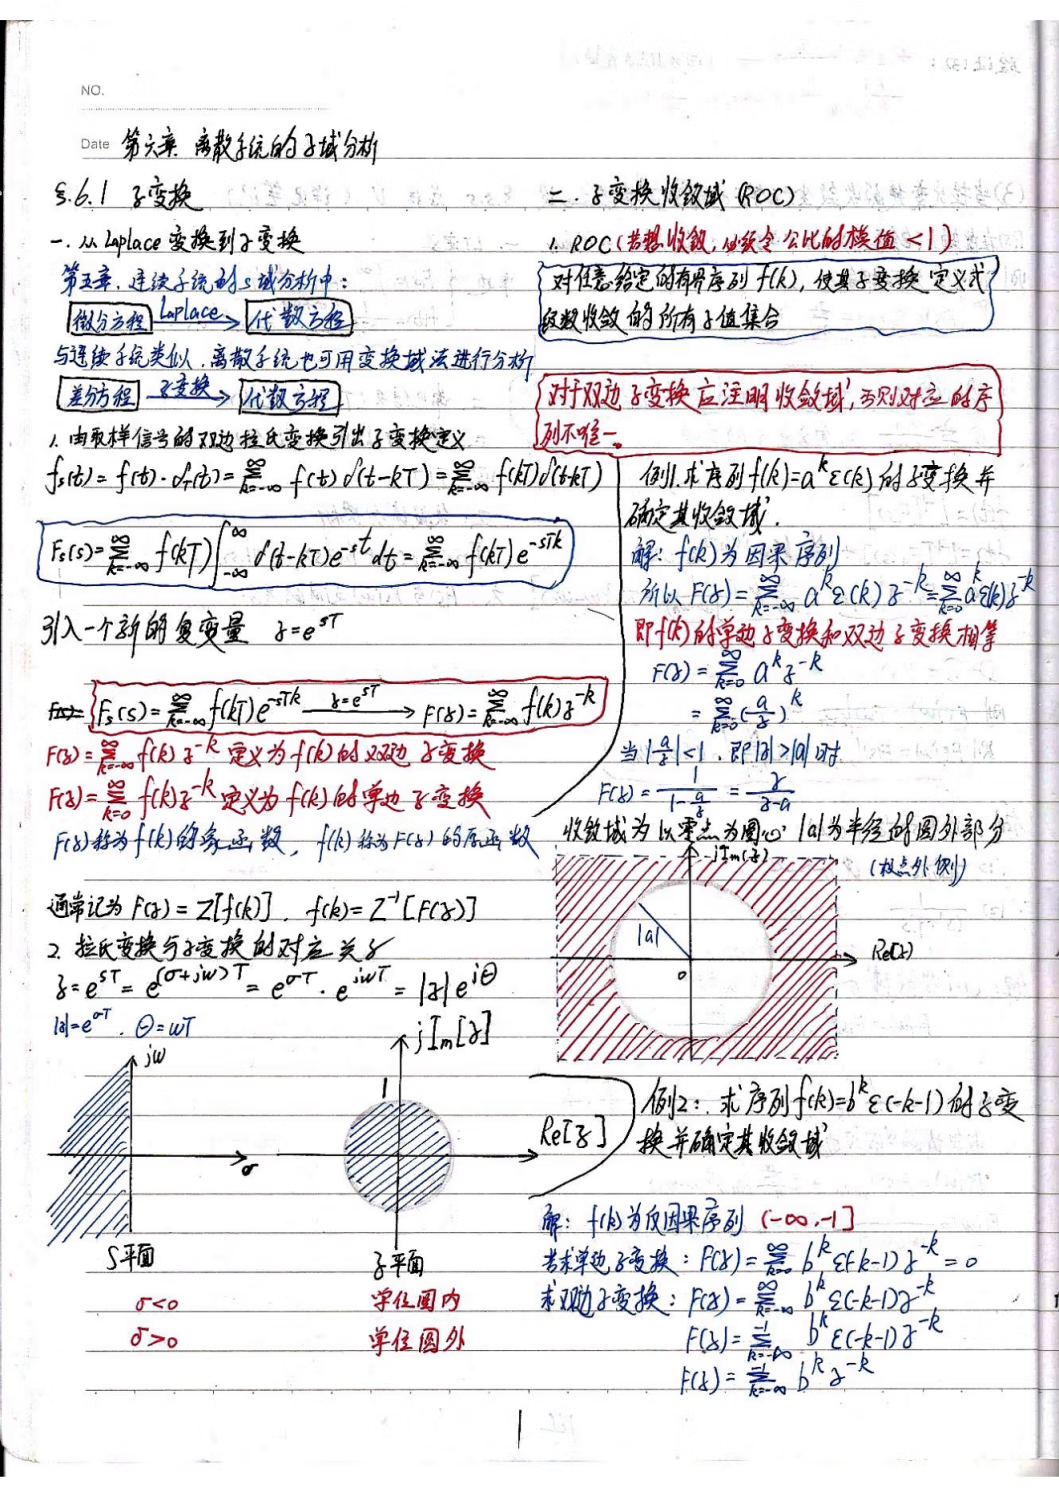 NO.
Date 第六章 离散系统的z域分析
§.6.1 z变换
一. 从 Laplace 变换到z变换
第五章, 连续系统的s域分析中:
微分方程 Laplace→ 代数方程
与连续系统类似, 离散系统也可用变换域法进行分析
差分方程 z变换→ 代数方程
1. 由取样信号的双边拉氏变换引出z变换定义
fs(t) = f(t)·δT(t) = ∑_{k=-∞}^{∞} f(t)δ(t-kT) = ∑_{k=-∞}^{∞} f(kT)δ(t-kT)
Fs(s) = ∑_{k=-∞}^{∞} f(kT) ∫_{-∞}^{∞} δ(t-kT)e^{-st}dt = ∑_{k=-∞}^{∞} f(kT)e^{-sTk}
引入一个新的复变量 z=e^{sT}
Fs(s) = ∑_{k=-∞}^{∞} f(kT)e^{-sTk} z=e^{sT}→ F(z) = ∑_{k=-∞}^{∞} f(k)z^{-k}
F(z) = ∑_{k=-∞}^{∞} f(k)z^{-k} 定义为f(k)的双边z变换
F(z) = ∑_{k=0}^{∞} f(k)z^{-k} 定义为f(k)的单边z变换
F(z)称为f(k)的象函数, f(k)称为F(z)的原函数
通常记为 F(z) = Z[f(k)], f(k) = Z^{-1}[F(z)]
2. 拉氏变换与z变换的对应关系
z = e^{sT} = e^{(σ+jw)T} = e^{σT}·e^{jwT} = |z|e^{jθ}
|z|=e^{σT}, θ=wT
jw
σ
S平面
σ<0
σ>0
jIm[z]
1
Re[z]
z平面
单位圆内
单位圆外
二. z变换收敛域 (ROC)
1. ROC (若想收敛, 必须令公比的模值<1)
对任意给定的有界序列f(k), 使其z变换定义式
级数收敛的所有z值集合
对于双边z变换应注明收敛域, 否则对应的序
列不唯一。
例1. 求序列f(k)=a^kε(k)的z变换并
确定其收敛域.
解: f(k)为因果序列
所以 F(z) = ∑_{k=-∞}^{∞} a^kε(k)z^{-k} = ∑_{k=0}^{∞} a^kε(k)z^{-k}
即f(k)的单边z变换和双边z变换相等
F(z) = ∑_{k=0}^{∞} a^k z^{-k}
= ∑_{k=0}^{∞} (a/z)^k
当|a/z|<1, 即|z|>|a|时
F(z) = 1/(1-a/z) = z/(z-a)
收敛域为以零点为圆心 |a|为半径的圆外部分
(极点外侧)
jIm(z)
|a|
o
Re(z)
例2: 求序列f(k)=b^kε(-k-1)的z变
换并确定其收敛域
解: f(k)为反因果序列 (-∞,-1]
若求单边z变换: F(z) = ∑_{k=0}^{∞} b^kε(-k-1)z^{-k} = 0
求双边z变换: F(z) = ∑_{k=-∞}^{∞} b^kε(-k-1)z^{-k}
F(z) = ∑_{k=-∞}^{-1} b^kε(-k-1)z^{-k}
F(z) = ∑_{k=-∞}^{-1} b^k z^{-k}
1